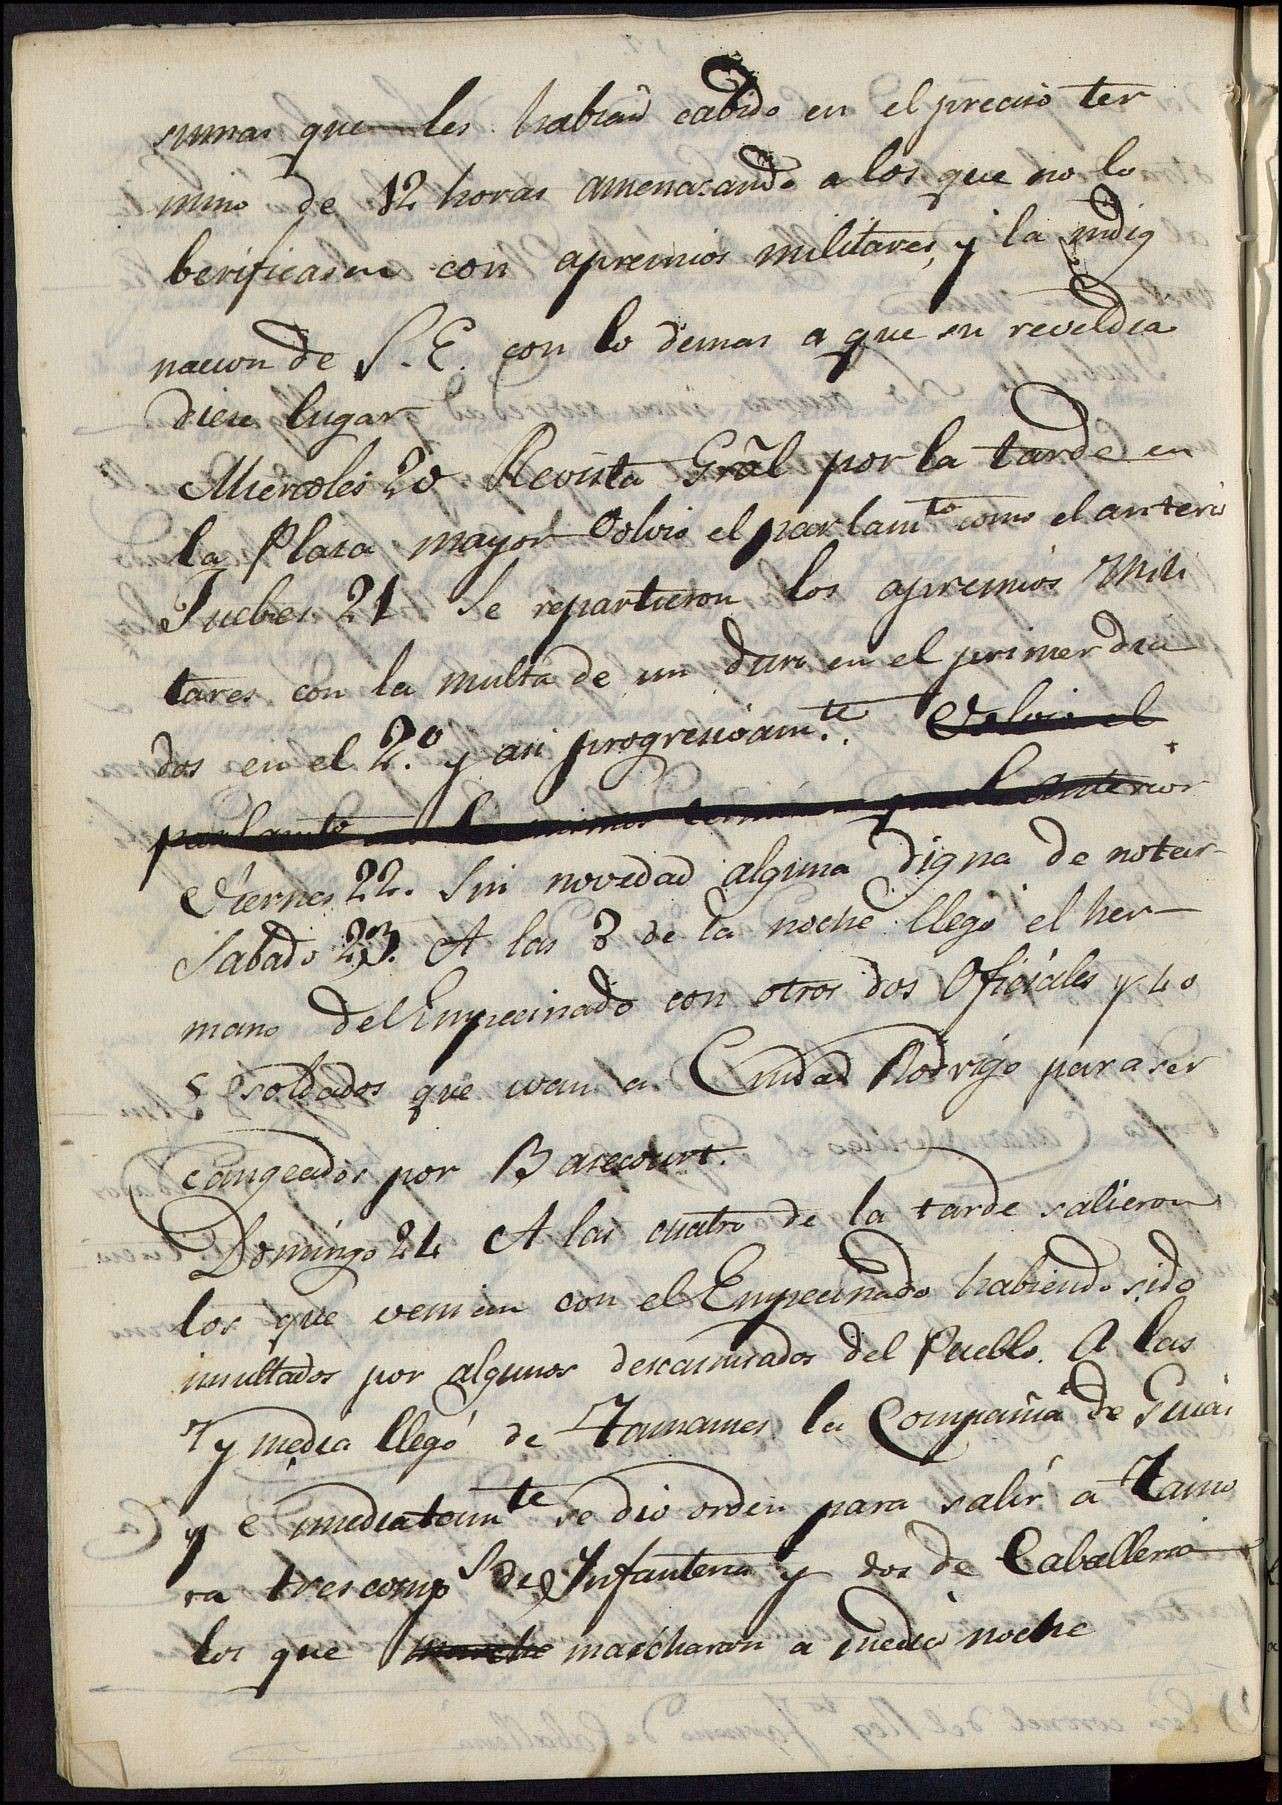 sumas que les habian cabido en el preciso ter
mino de 12 horas amenazando a los que no lo
berificasen con apremios militares, y la indig
nacion de S. E. con lo demas a que su reveldia
diese lugar
Miercoles 20 Revista Grãl por la tarde en
la Plaza mayor Volvio el parlam.to como el anterior
Juebes 21 Se repartieron los apremios Mili
tares con la multa de un duro en el primer dia
dos en el 2.º y asi progresivam.te. Volvio el
parlamto en los mismos terminos que el anterior
Viernes 22. Sin novedad alguna digna de notar
Sabado 23. A las 8 de la noche llegó el her-
mano del Empecinado con otros dos Oficiales y 40
soldados que ivan a Ciudad Rodrigo para ser
cangeados por Barecourt.
Domingo 24 A las cuatro de la tarde salieron
los que venian con el Empecinado habiendo sido
insultados por algunos descamisados del Pueblo. A las
7 y media llegó de Tamames la Compañia de Guias
y e imediatamte se dio orden para salir a Zamo
ra tres comps de Infanteria y dos de Caballeria
los que marcharon a media noche